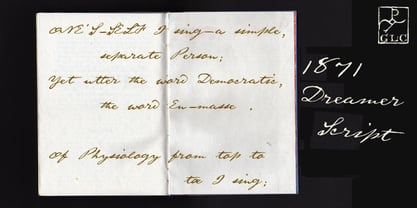 ONE'S-SELF I sing—a simple,
separate Person;
Yet utter the word Democratic,
the word En-masse .
Of Physiology from top to
toe I sing;
GLC
1871
Dreamer
Script